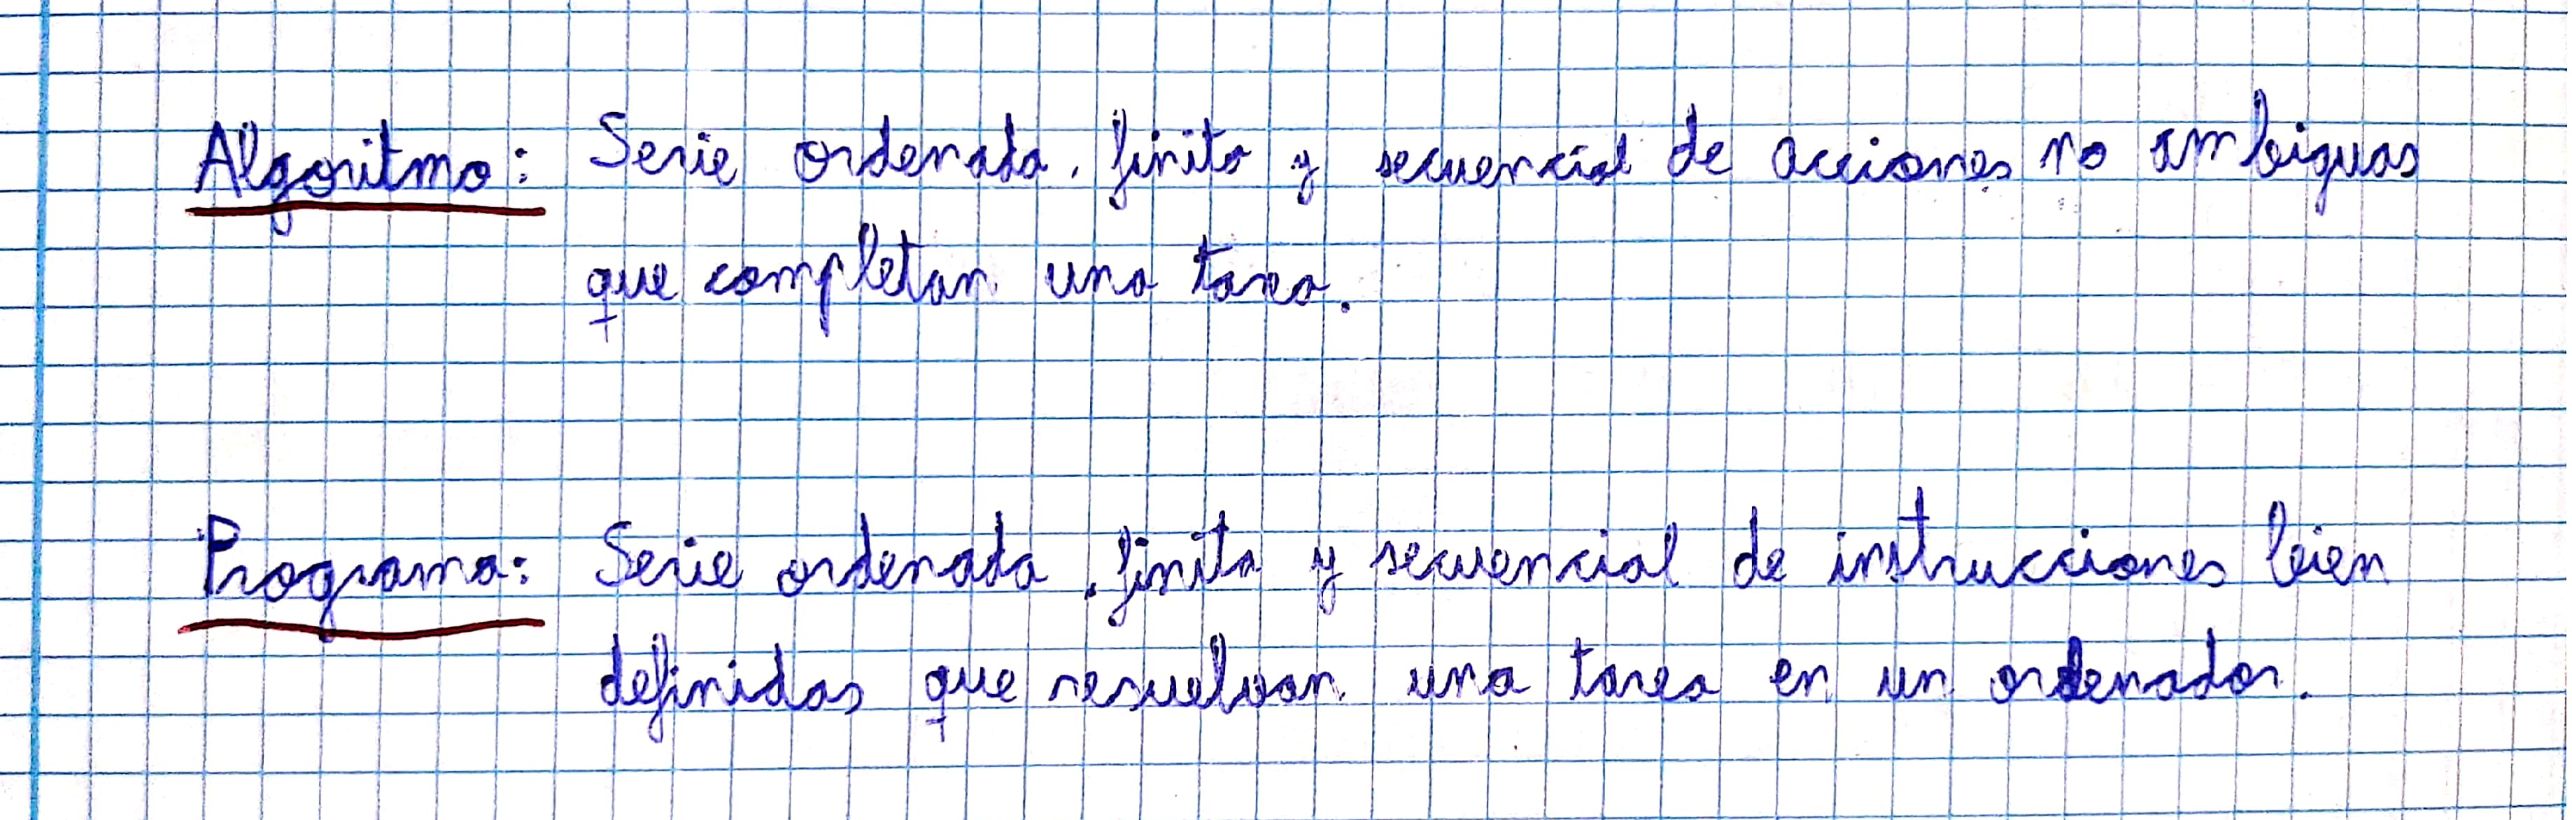 Algoritmo: Serie ordenada, finita y secuencial de acciones no ambiguas
que completan una tarea.
Programa: Serie ordenada, finita y secuencial de intrucciones bien
definidas que resuelvan una tarea en un ordenador.